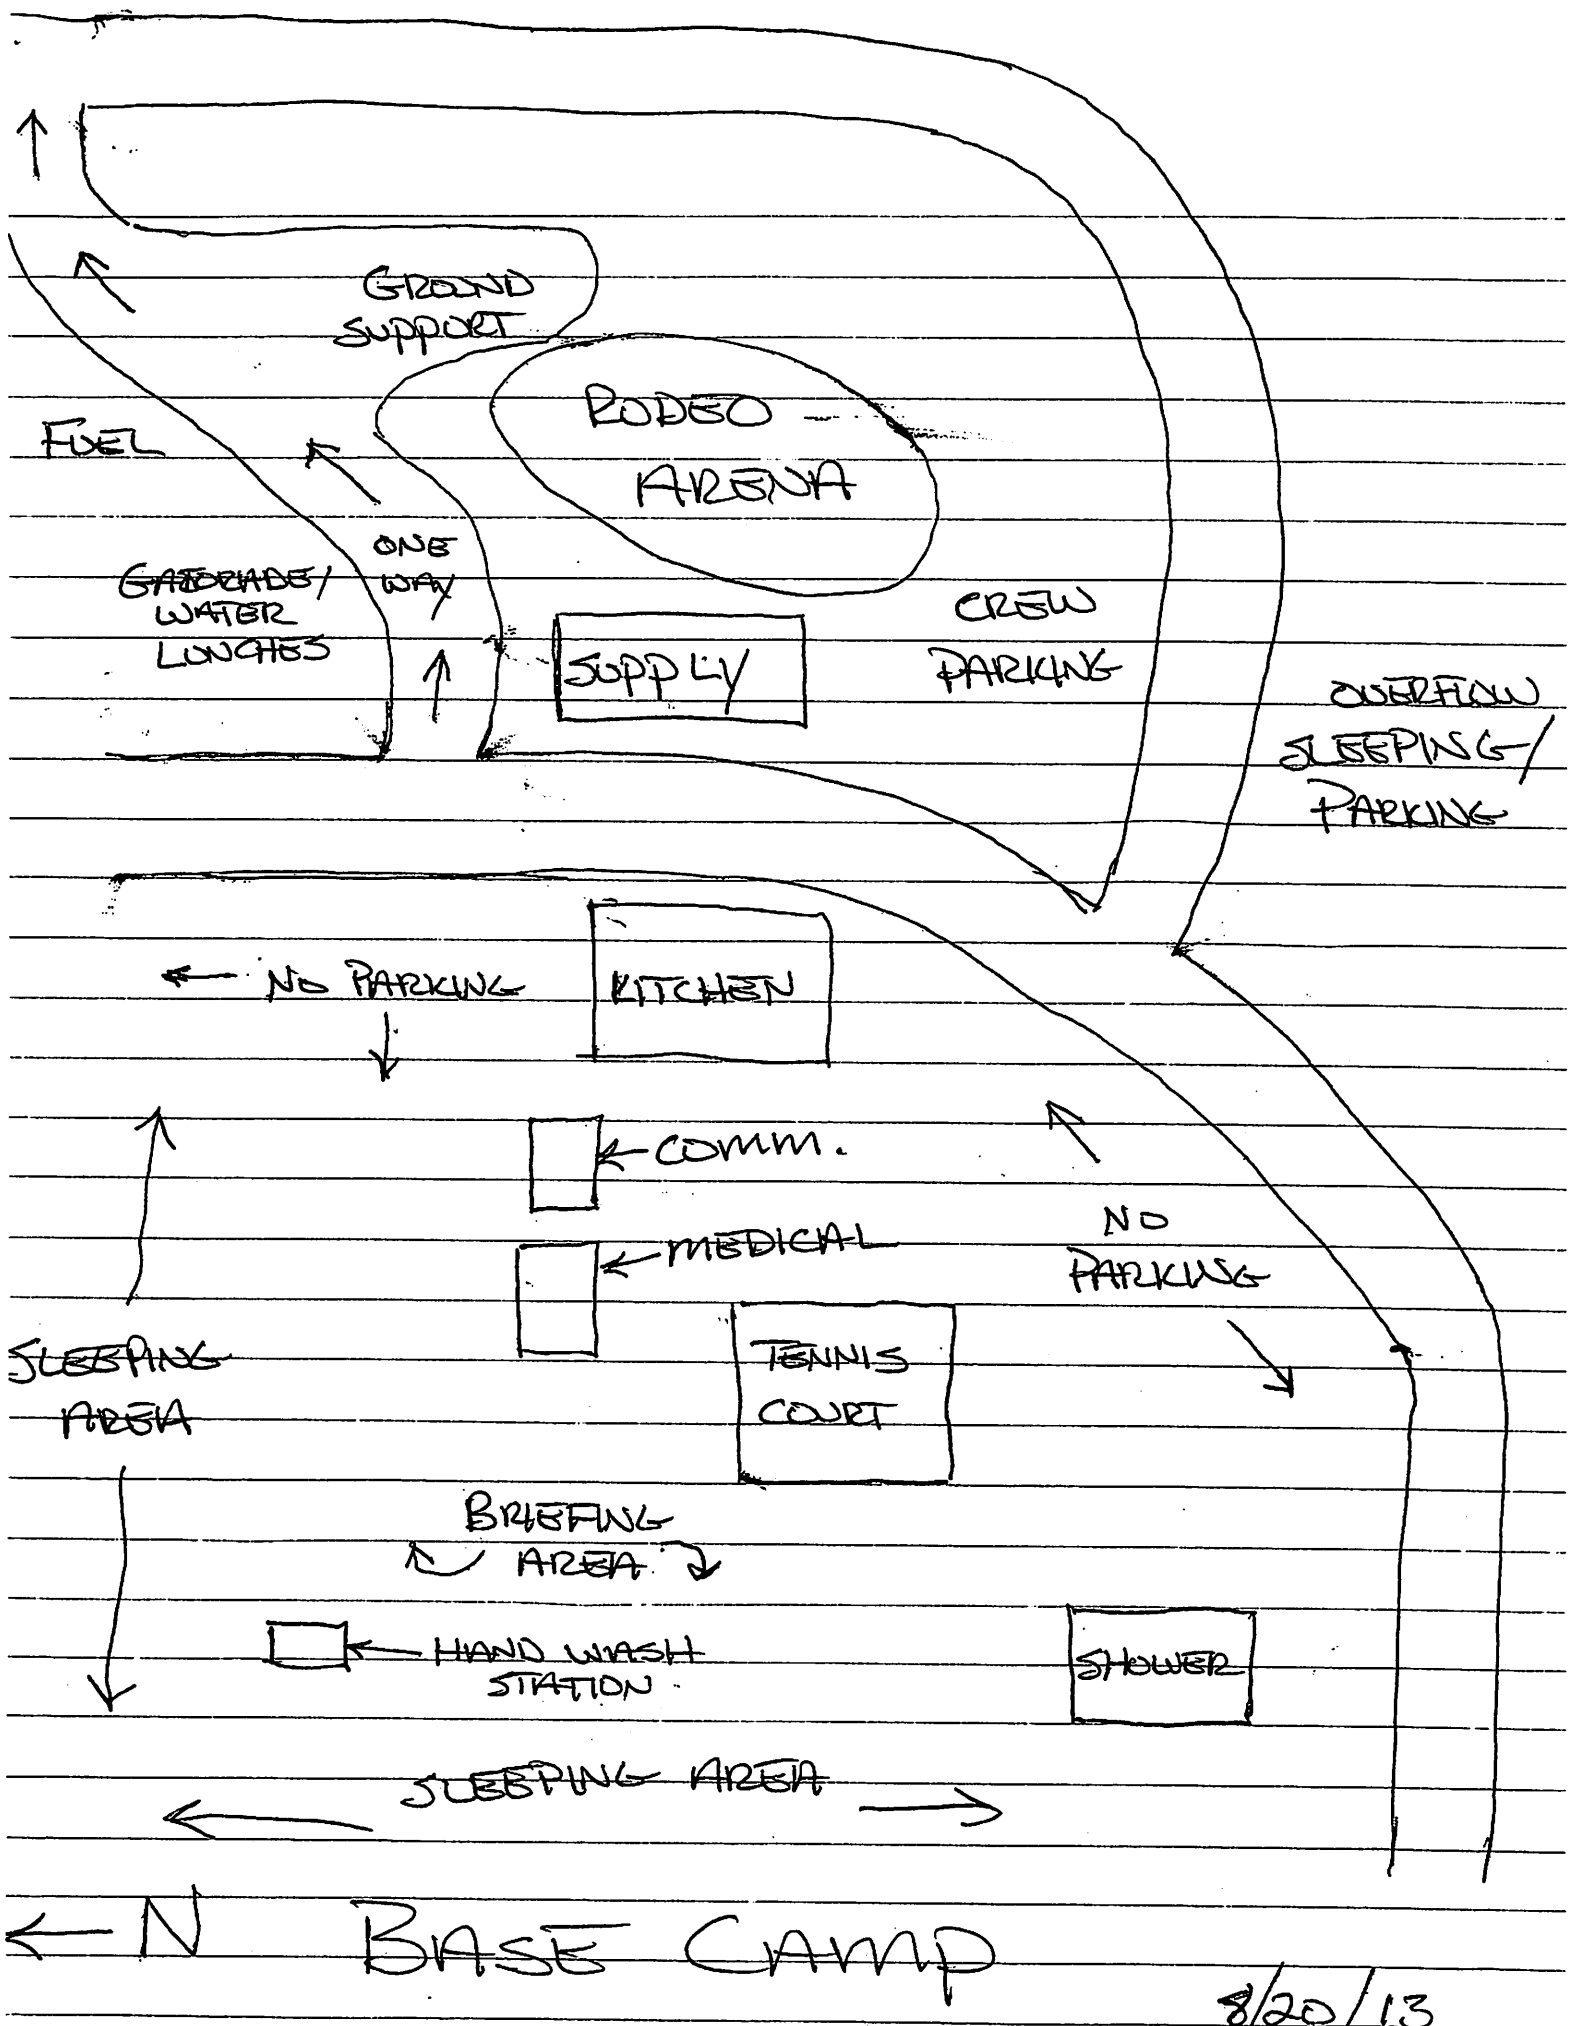 GROUND
SUPPORT
RODEO
ARENA
FUEL
ONE
WAY
GATORADE/
WATER
LUNCHES
SUPPLY
CREW
PARKING
OVERFLOW
SLEEPING/
PARKING
NO PARKING
KITCHEN
COMM.
MEDICAL
NO
PARKING
SLEEPING
AREA
TENNIS
COURT
BRIEFING
AREA
HAND WASH
STATION
SHOWER
SLEEPING AREA
N BASE CAMP
8/20/13